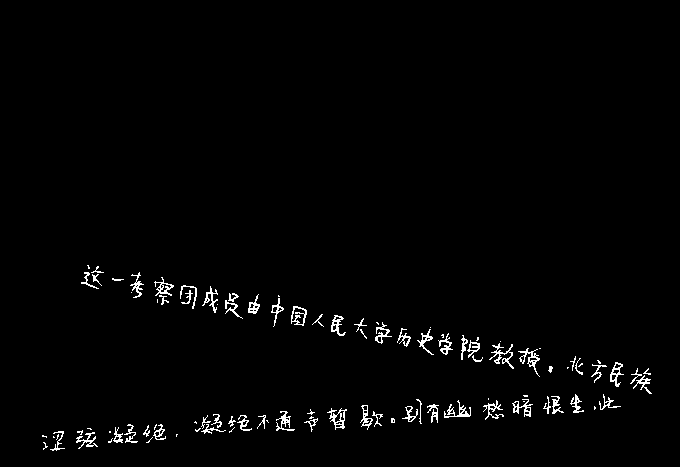 这一考察团成员由中国人民大学历史学院教授。北方民族
涩弦凝绝，凝绝不通声暂歇。别有幽愁暗恨生，此